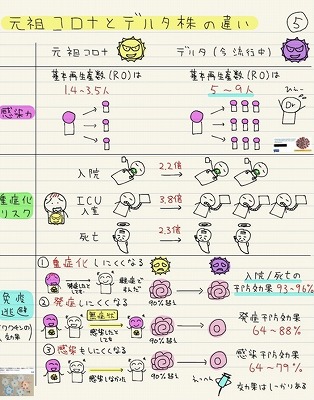 元祖コロナとデルタ株の違い ⑤
元祖コロナ デルタ(今流行中)
基本再生産数(R0)は 基本再生産数(R0)は
1.4~3.5人 5~9人
感染力
Dr
入院 2.2倍
重症化
リスク
ICU
入室
3.8倍
死亡 2.3倍
免疫
逃避
(ワクチンの)
効果
① 重症化しにくくなる
発症したと
しても
軽症で
すんだ
90%超え
入院/死亡の
予防効果 93~96%
② 発症しにくくなる
感染したと
しても
無症状
90%超え
発症予防効果
64~88%
③ 感染もしにくくなる
感染しなかった
90%超え
感染予防効果
64~79%
えっへん
効果はしっかりある